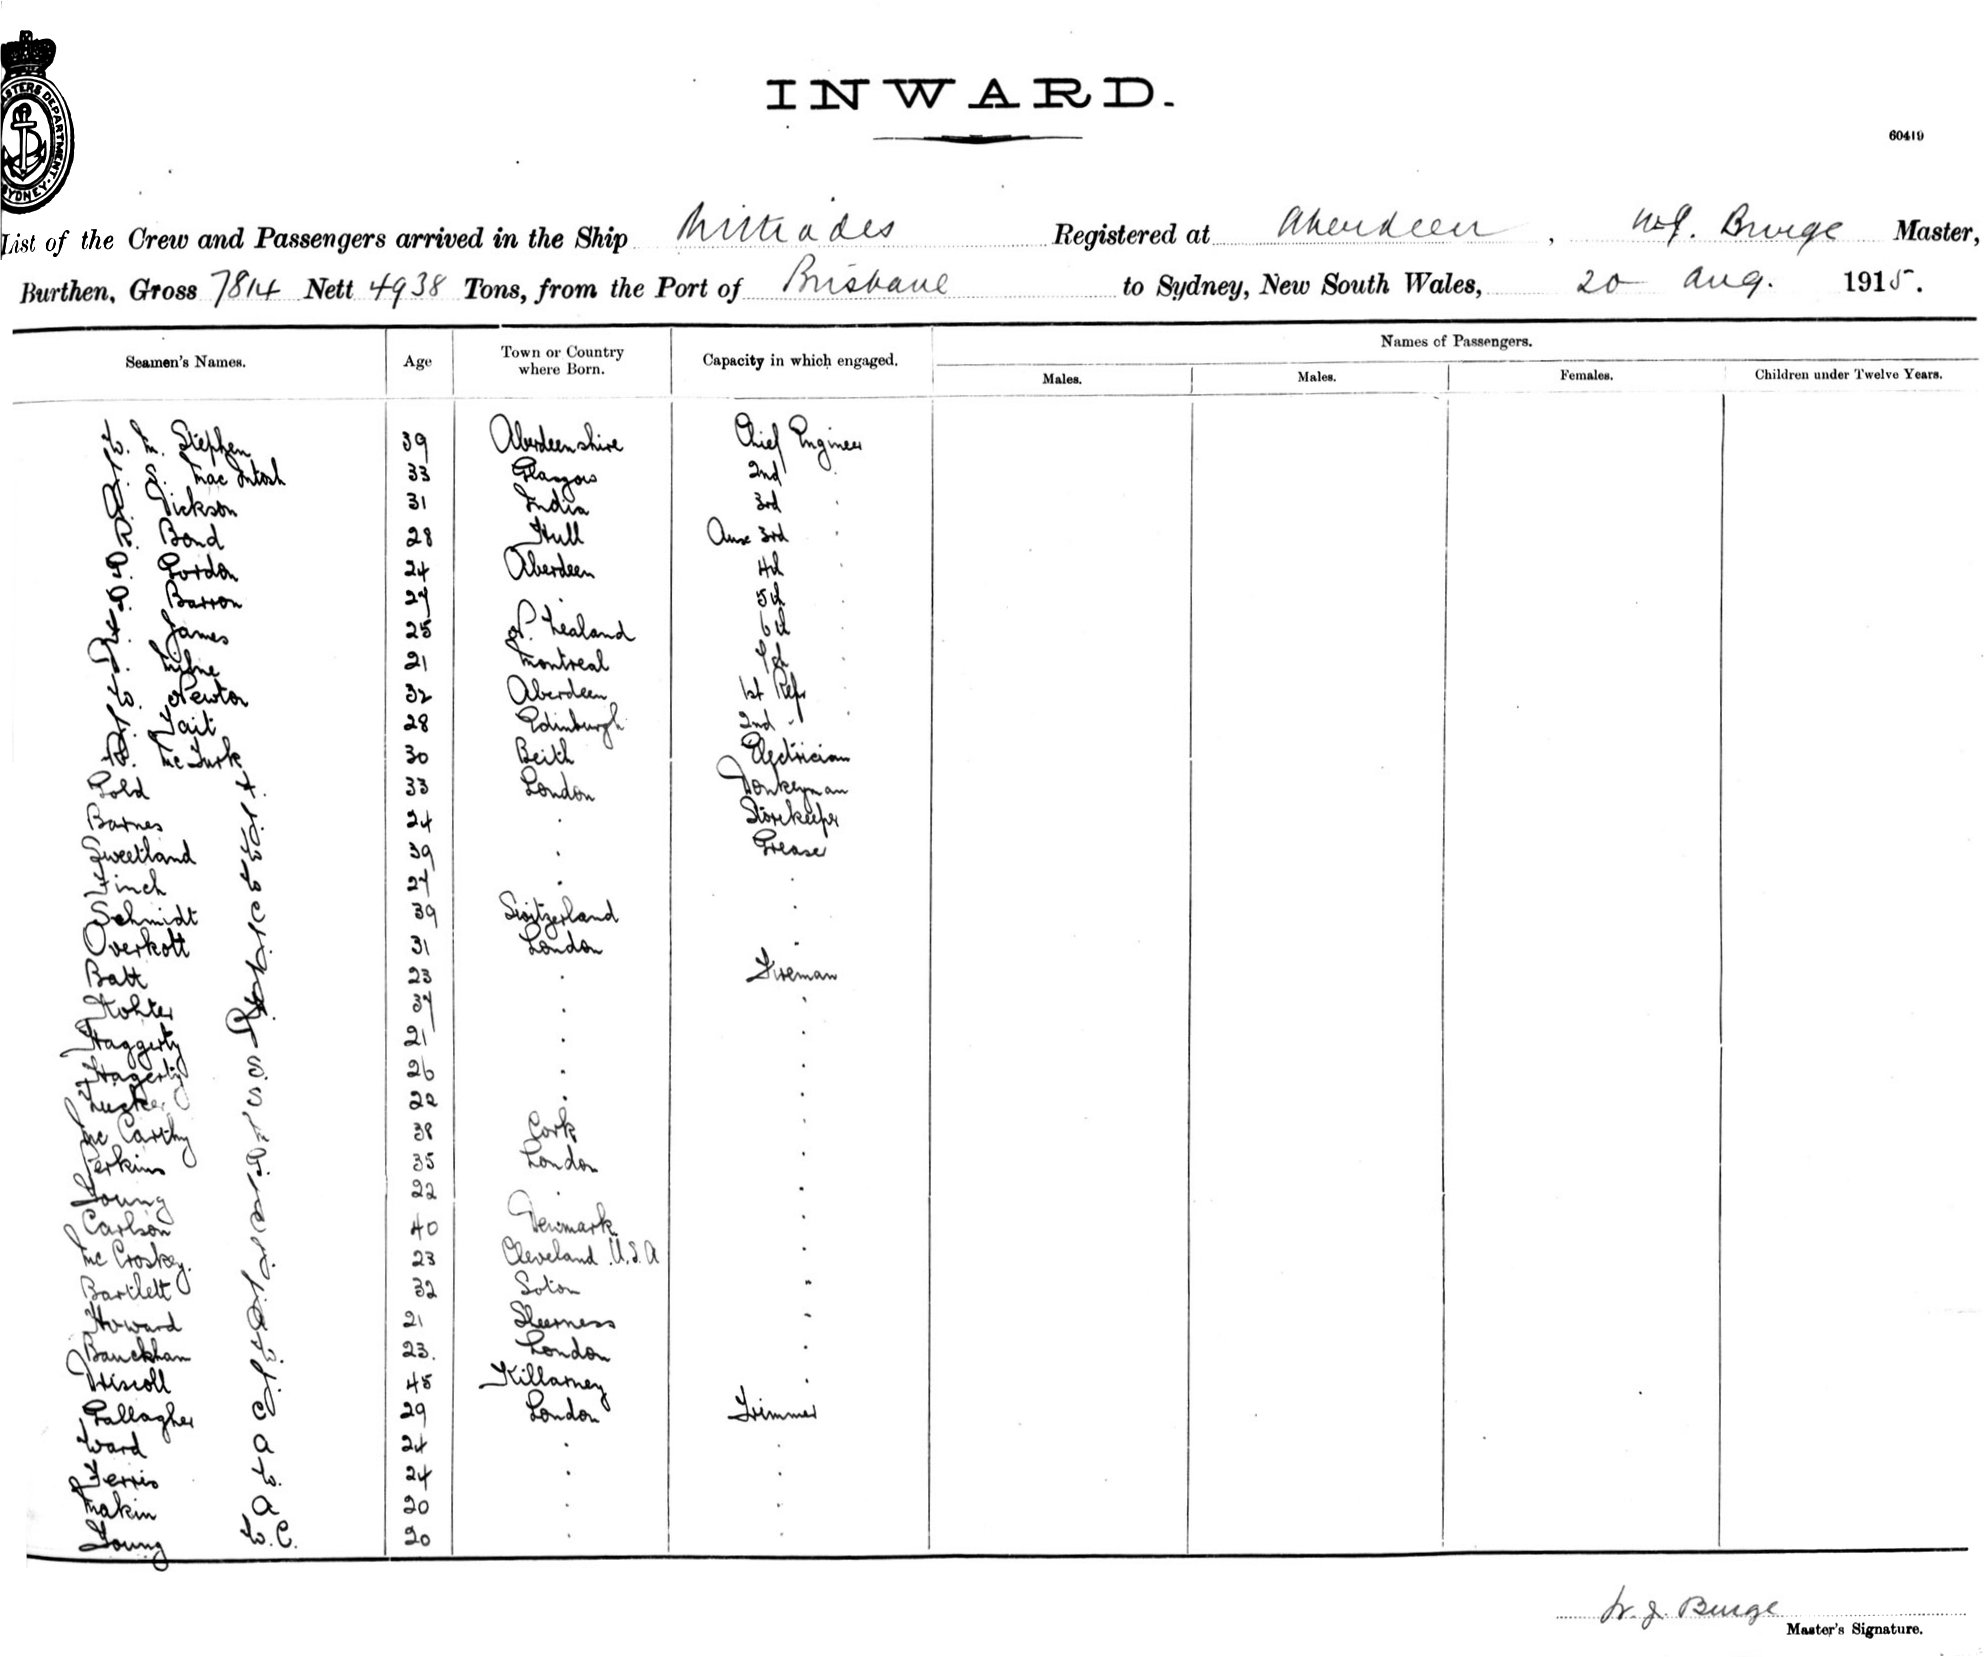 MASTERS DEPARTMENT. SYDNEY.
INWARD.
60419
List of the Crew and Passengers arrived in the Ship Miltiades Registered at Aberdeen, W.J. Burge Master,
Burthen, Gross 7814 Nett 4938 Tons, from the Port of Brisbane to Sydney, New South Wales, 20 Aug. 1915.
Seamen's Names. Age Town or Country where Born. Capacity in which engaged. Names of Passengers.
Males. Males. Females. Children under Twelve Years.
W. M. Stephen 39 Aberdeenshire Chief Engineer
S. MacIntosh 33 Glasgow 2nd "
Dickson 31 India 3rd "
Bond 28 Hull 3rd "
Gordon 24 Aberdeen 4th "
Barron 27 " 5th "
James 25 N. Zealand 6th "
Milne 21 Montreal 7th "
W. Newton 32 Aberdeen 1st Refr "
J. Tait 28 Edinburgh 2nd " "
McTurk 30 Beith Electrician
Gold 33 London Donkeyman
Barnes 24 " Storekeeper
Sweetland 39 " Greaser
Finch 27 " "
Schmidt 39 Switzerland "
Overkott 31 London "
Batt 23 " Fireman
Kohler 37 " "
Haggerty 21 " "
Hagerty S 26 " "
Tucker S 22 " "
McCarthy J 38 Cork "
Perkins 35 London "
Young 22 " "
Carlson C 40 Denmark "
McCroskey 23 Cleveland U.S.A "
Bartlett J 32 Soton "
Howard 21 Sheerness "
Bauckham 23. London "
Driscoll J 45 Killarney "
Gallagher C 29 London Trimmer
Ward A 24 " "
Ferris W. 24 " "
Makin A 20 " "
Young W. C. 20 " "
W. J. Burge
Master's Signature.